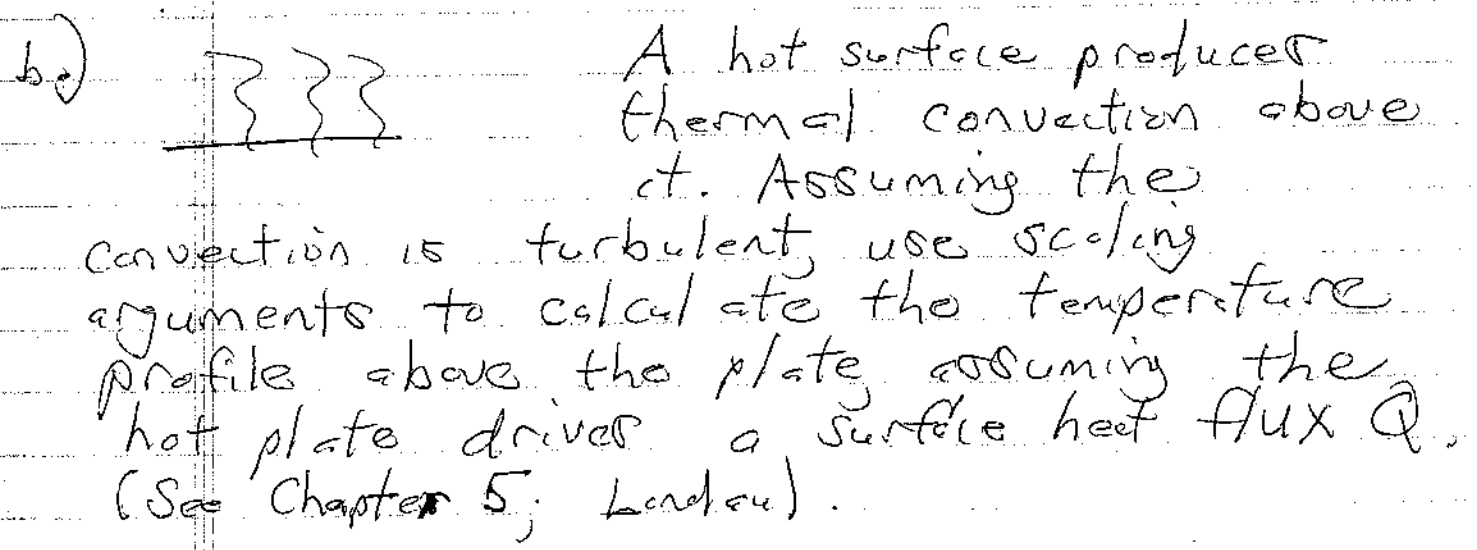 b.) A hot surface produces
thermal convection above
it. Assuming the
convection is turbulent, use scaling
arguments to calculate the temperature
profile above the plate, assuming the
hot plate drives a surface heat flux Q.
(See Chapter 5; Landau).